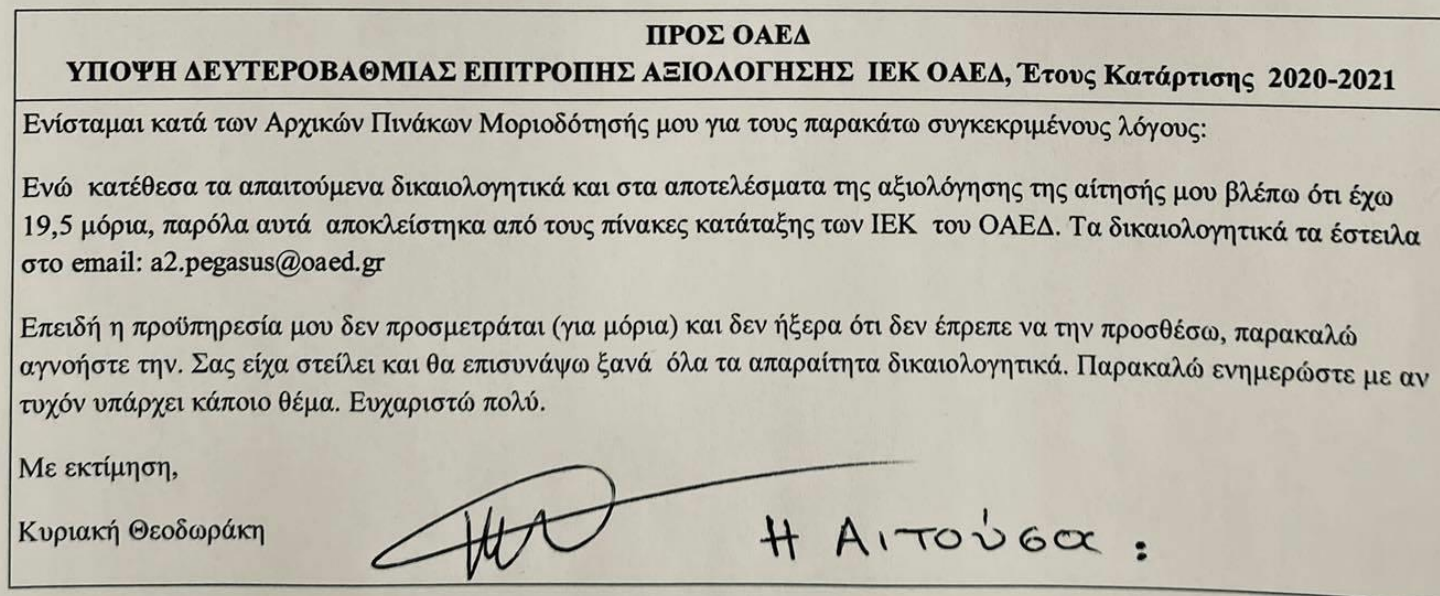 ΠΡΟΣ ΟΑΕΔ
ΥΠΟΨΗ ΔΕΥΤΕΡΟΒΑΘΜΙΑΣ ΕΠΙΤΡΟΠΗΣ ΑΞΙΟΛΟΓΗΣΗΣ ΙΕΚ ΟΑΕΔ, Έτους Κατάρτισης 2020-2021
Ενίσταμαι κατά των Αρχικών Πινάκων Μοριοδότησής μου για τους παρακάτω συγκεκριμένους λόγους:
Ενώ κατέθεσα τα απαιτούμενα δικαιολογητικά και στα αποτελέσματα της αξιολόγησης της αίτησής μου βλέπω ότι έχω
19,5 μόρια, παρόλα αυτά αποκλείστηκα από τους πίνακες κατάταξης των ΙΕΚ του ΟΑΕΔ. Τα δικαιολογητικά τα έστειλα
στο email: a2.pegasus@oaed.gr
Επειδή η προϋπηρεσία μου δεν προσμετράται (για μόρια) και δεν ήξερα ότι δεν έπρεπε να την προσθέσω, παρακαλώ
αγνοήστε την. Σας είχα στείλει και θα επισυνάψω ξανά όλα τα απαραίτητα δικαιολογητικά. Παρακαλώ ενημερώστε με αν
τυχόν υπάρχει κάποιο θέμα. Ευχαριστώ πολύ.
Με εκτίμηση,
Κυριακή Θεοδωράκη
Η Αιτούσα :